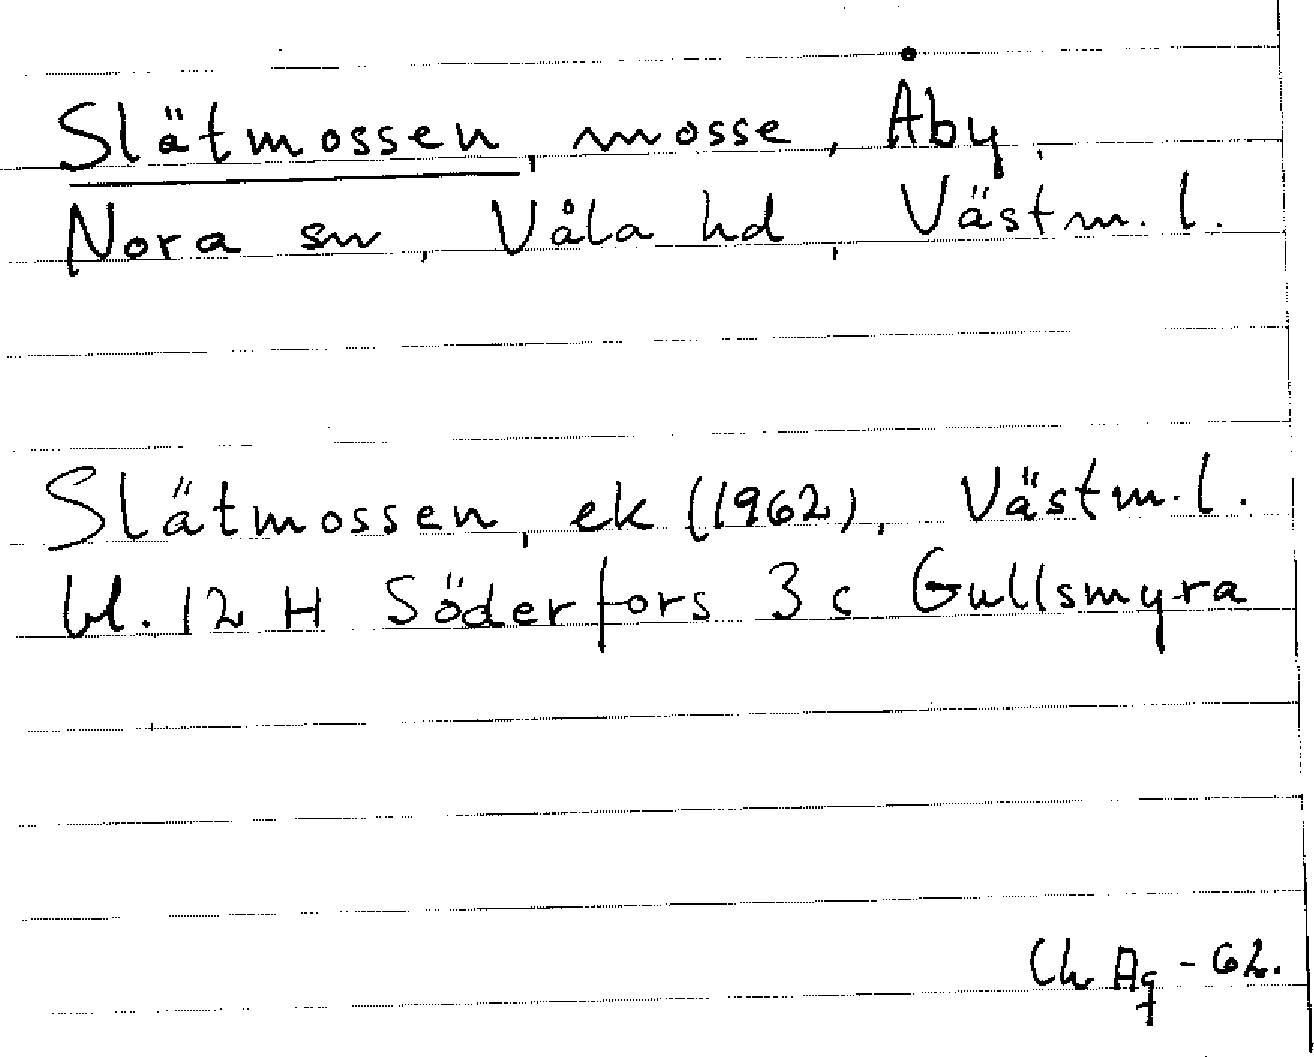 Slätmossen, mosse, Åby,
Nora sn, Våla hd, Västm. l.
Slätmossen, ek (1962), Västm. l.
bl. 12 H Söderfors 3 c Gullsmyra
Ch Ag - 62.